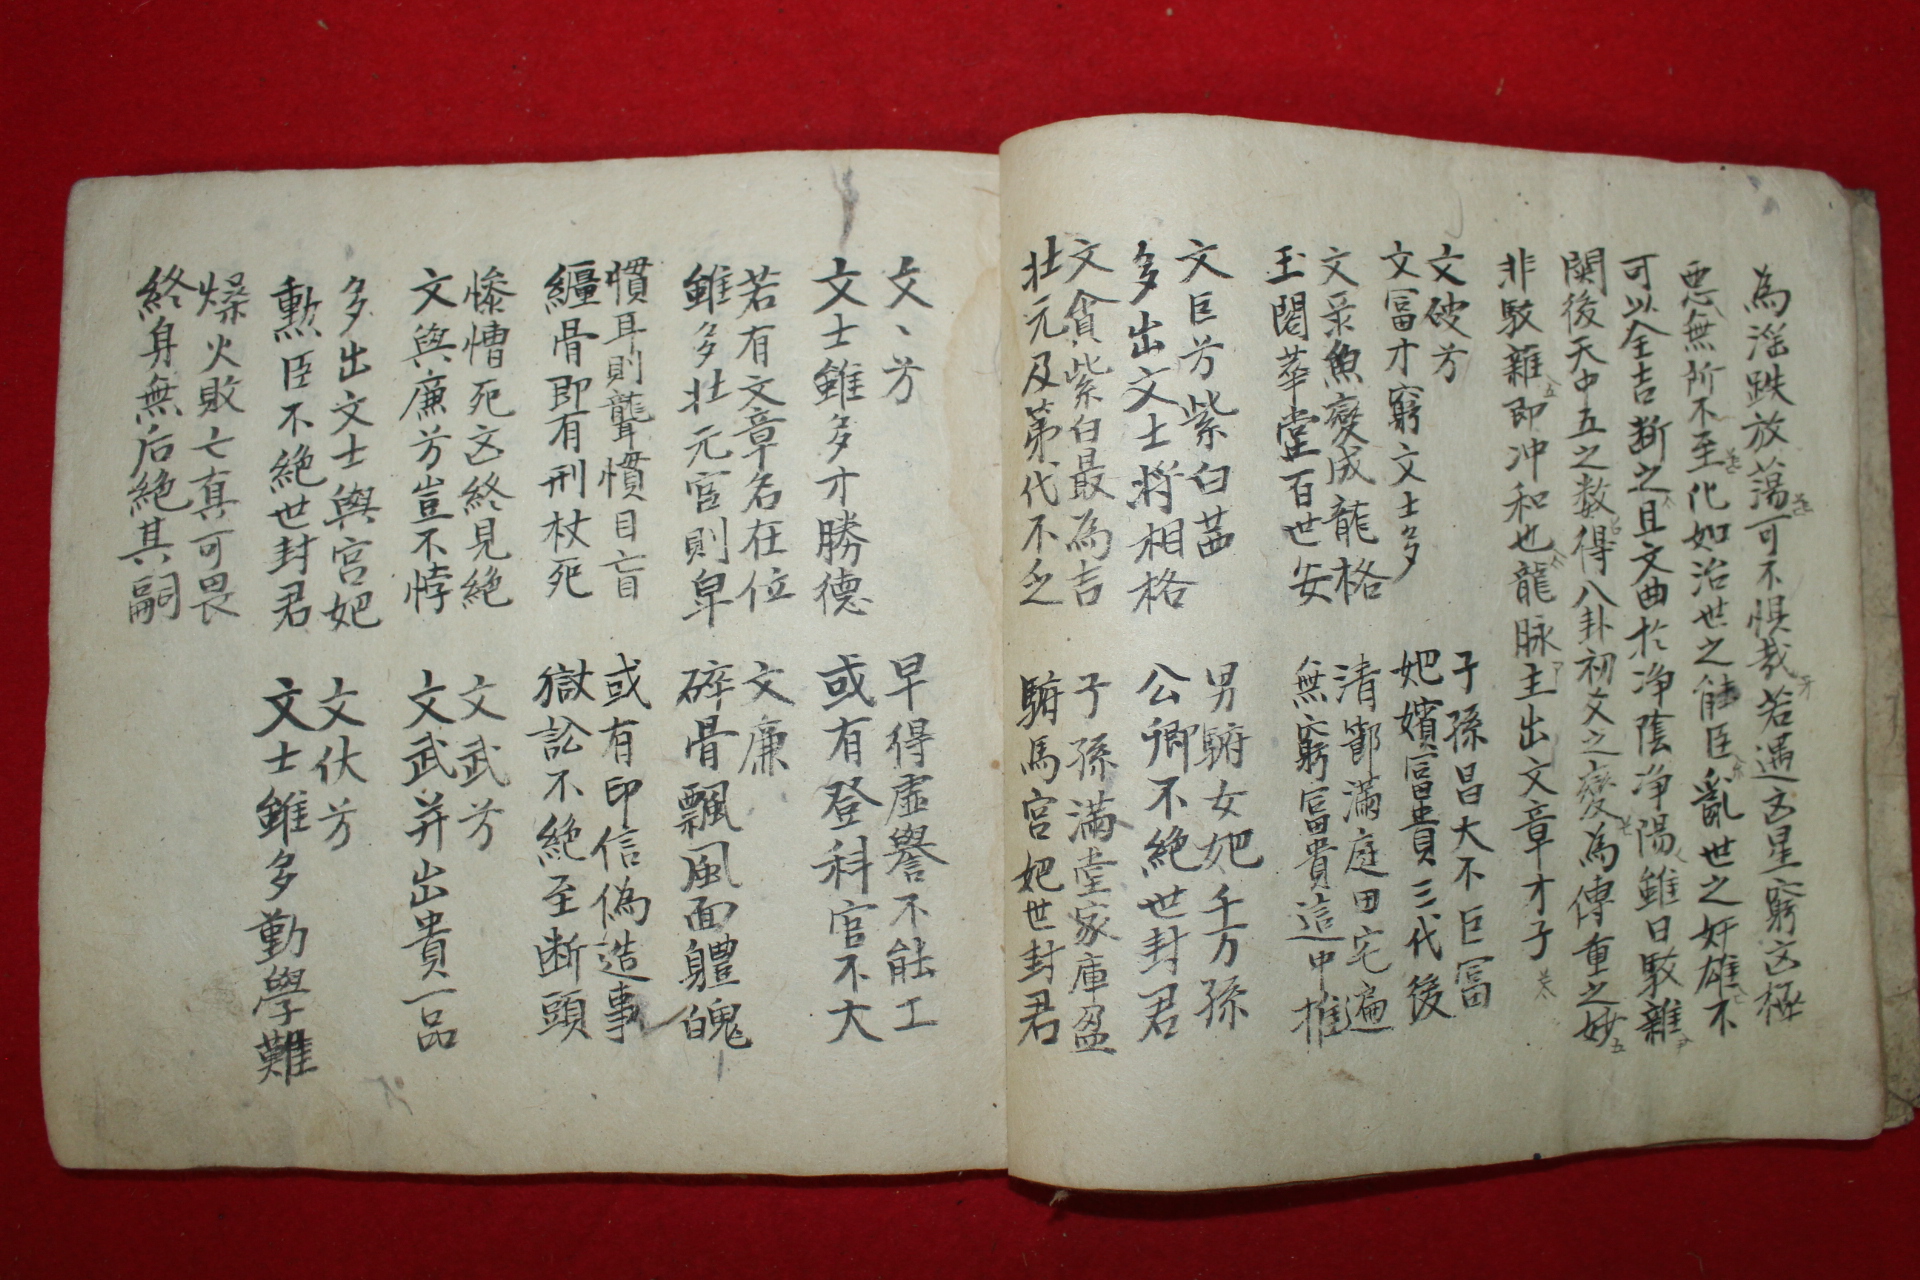 為淫跌放蕩可不惧哉若遇凶星窮凶極
惡無所不至化如治世之能臣亂世之奸雄不
可以全吉断之且文曲於净陰净陽雖曰駁雜
関後天中五之数得八卦初爻之變為傳重之妙
非駁雜即冲和也龍脉主出文章才子
文破芳
文富才窮文士多
子孫昌大不巨富
妑嬪富貴三代後
文彔魚變成龍格
玉閣華堂百世安
清鄮滿庭田宅遍
無窮富貴這中推
文巨芳紫白茜
多出文士將相格
男駙女妑千万孫
公卿不絶世封君
文貪紫白最為吉
壮元及第代不乏
子孫滿堂家庫盈
駙馬宮妑世封君
文丶芳
文士雖多才勝德
早得虛譽不能工
或有登科官不大
若有文章名在位
雖多壮元官則卑
文廉
碎骨飄風面軆醜
慣耳則聾慣目盲
纒骨即有刑杖死
或有印信偽造事
獄訟不絶至断頭
惨慒死凶終見絶
文與廉芳豈不悖
文武芳
文武并出貴一品
多出文士與宮妑
勲臣不絶世封君
文伏芳
文士雖多勤學難
燥火敗亡真可畏
終身無后絶其嗣